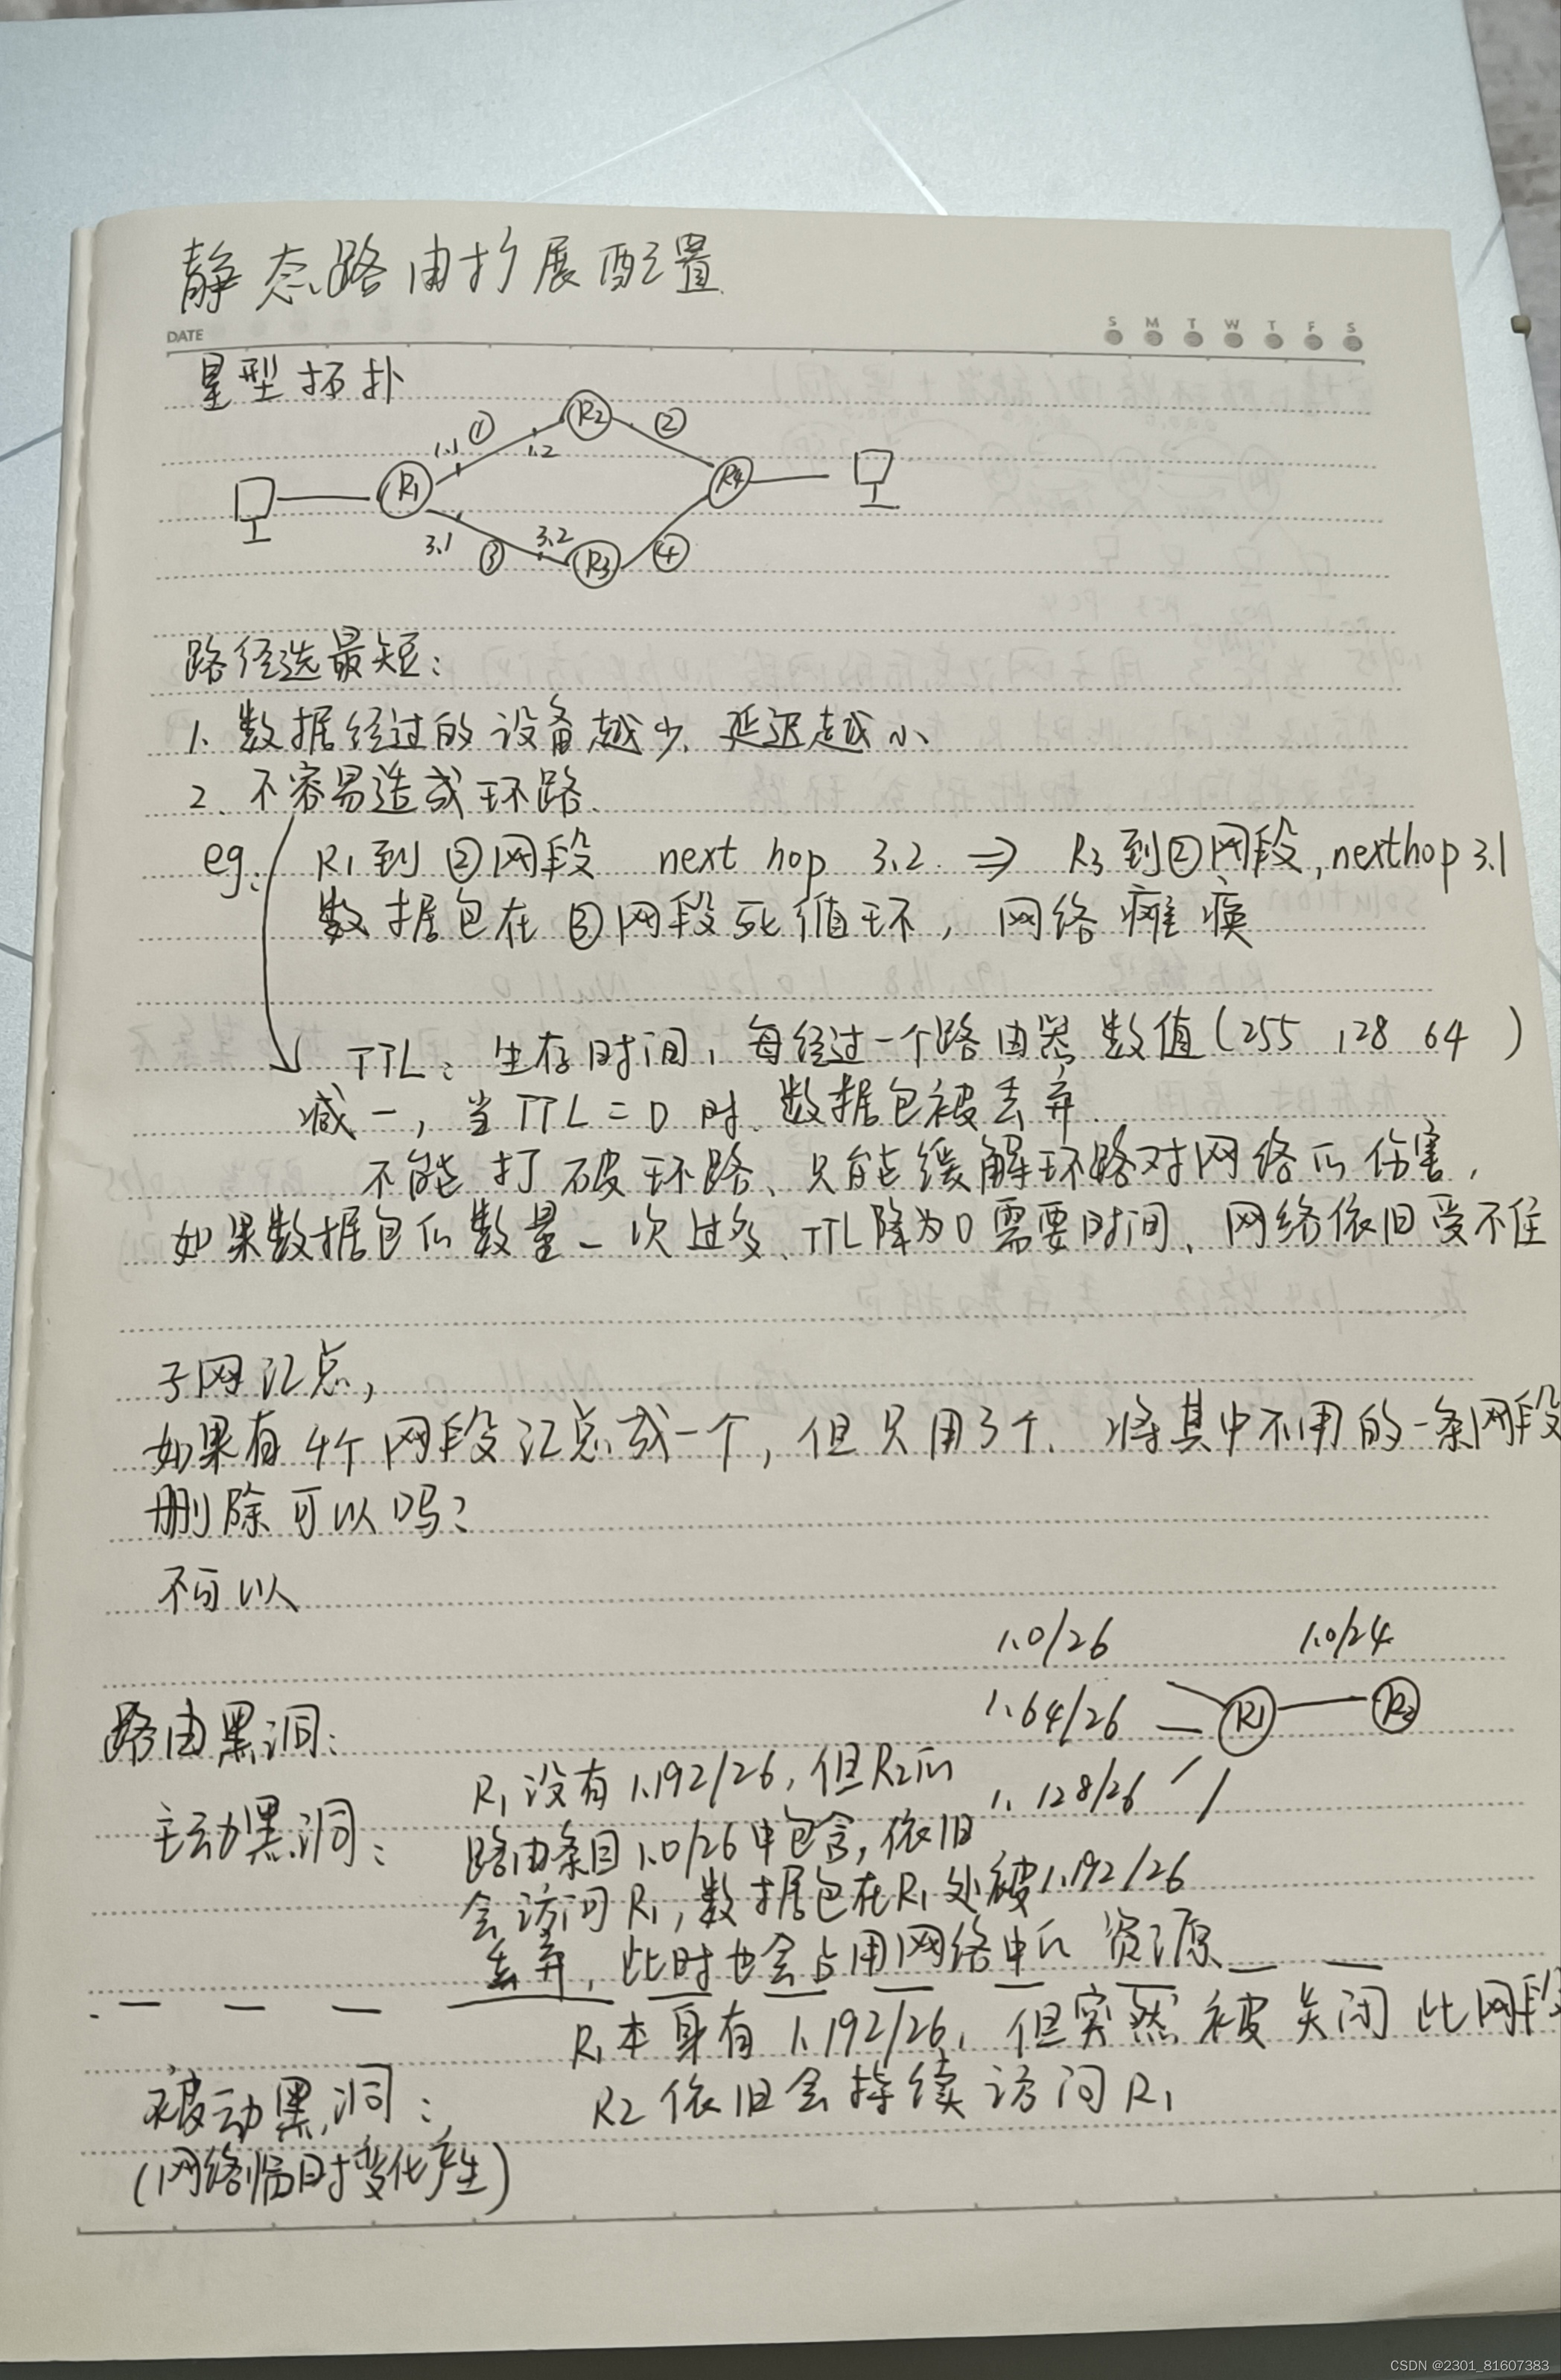 静态路由扩展配置
DATE
S M T W T F S
星型拓扑
R1 1.1 ① 1.2 R2 ② R4
3.1 ③ 3.2 R3 ④
路径选最短：
1、数据经过的设备越少，延迟越小
2、不容易造成环路
eg: R1到②网段 next hop 3.2 ⇒ R3到②网段, nexthop 3.1
数据包在③网段死循环，网络瘫痪
TTL：生存时间，每经过一个路由器数值(255 128 64 )
减一，当TTL=0时、数据包被丢弃
不能打破环路、只能缓解环路对网络的伤害，
如果数据包的数量一次过多、TTL降为0需要时间、网络依旧受不住
子网汇总，
如果有4个网段汇总成一个，但只用3个、将其中不用的一条网段
删除可以吗？
不可以
1.0/26 1.0/24
1.64/26 R1 R2
1.128/26
路由黑洞：
主动黑洞：
R1没有1.192/26，但R2的
路由条目1.0/26中包含，依旧
会访问R1，数据包在R1处被1.192/26
丢弃，此时也会占用网络中的资源
R1本身有1.192/26，但突然被关闭此网段
被动黑洞：
R2依旧会持续访问R1
(网络临时变化产生)
CSDN @2301_81607383